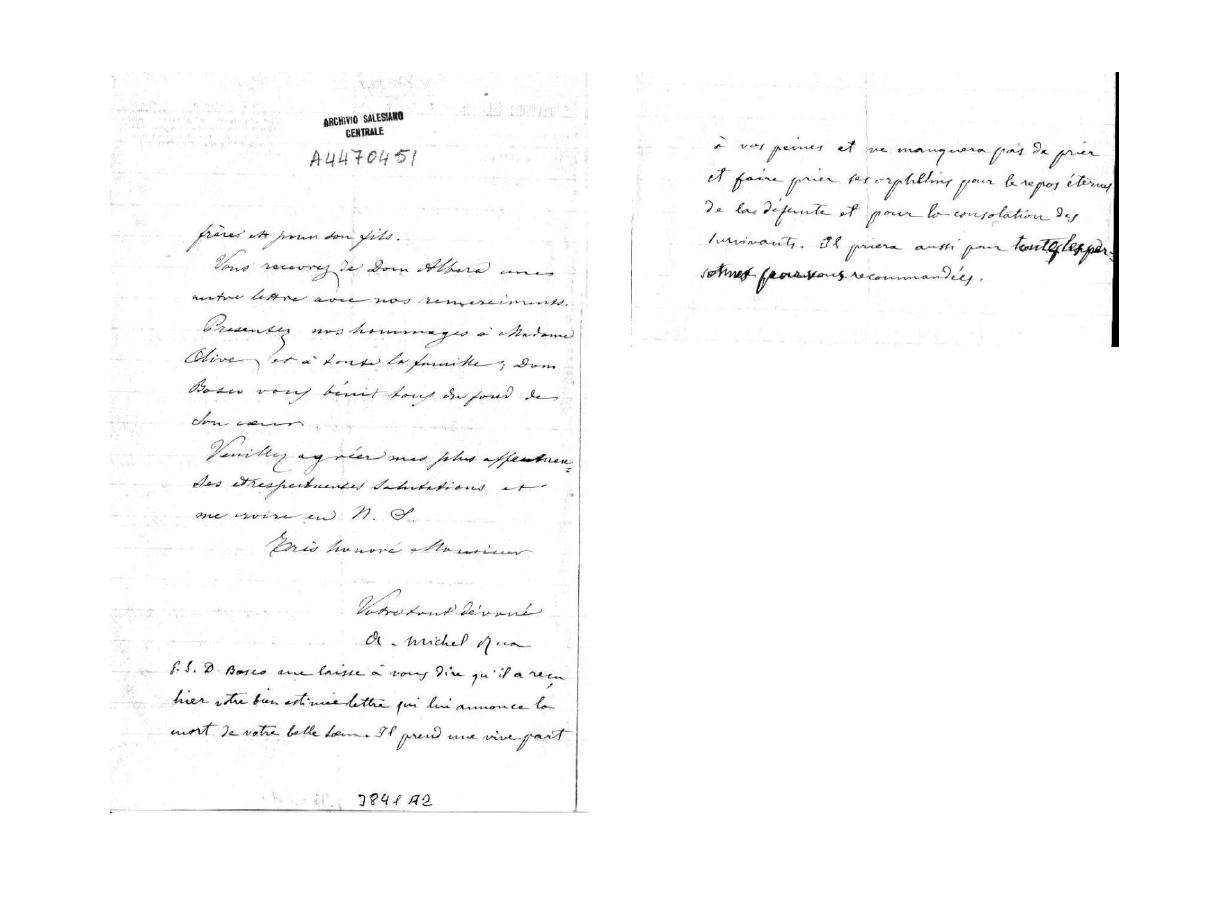 ARCHIVIO SALESIANO
CENTRALE
A4470451
frères et pour son fils.
Vous recevrez de Dom Albera une
autre lettre avec nos remerciements.
Presentez nos hommages à Madame
Olive et à toute la famille, Dom
Bosco vous bénit tous du fond de
son cœur.
Veuillez agréer mes plus affectueu=
ses et respectueuses salutations et
me croire en N. S.
Très honoré Monsieur
Votre tout dévoué
Michel Rua
P.S. D. Bosco me laisse à vous dire qu'il a reçu
hier votre bien estimée lettre qui lui annonce la
mort de votre belle sœur. Il prend une vive part
3841 A2
à vos peines et ne manquera pas de prier
et faire prier ses orphelins pour le repos éternel
de la défunte et pour la consolation des
survivants. Il priera aussi pour toutes les per=
sonnes recommandées.